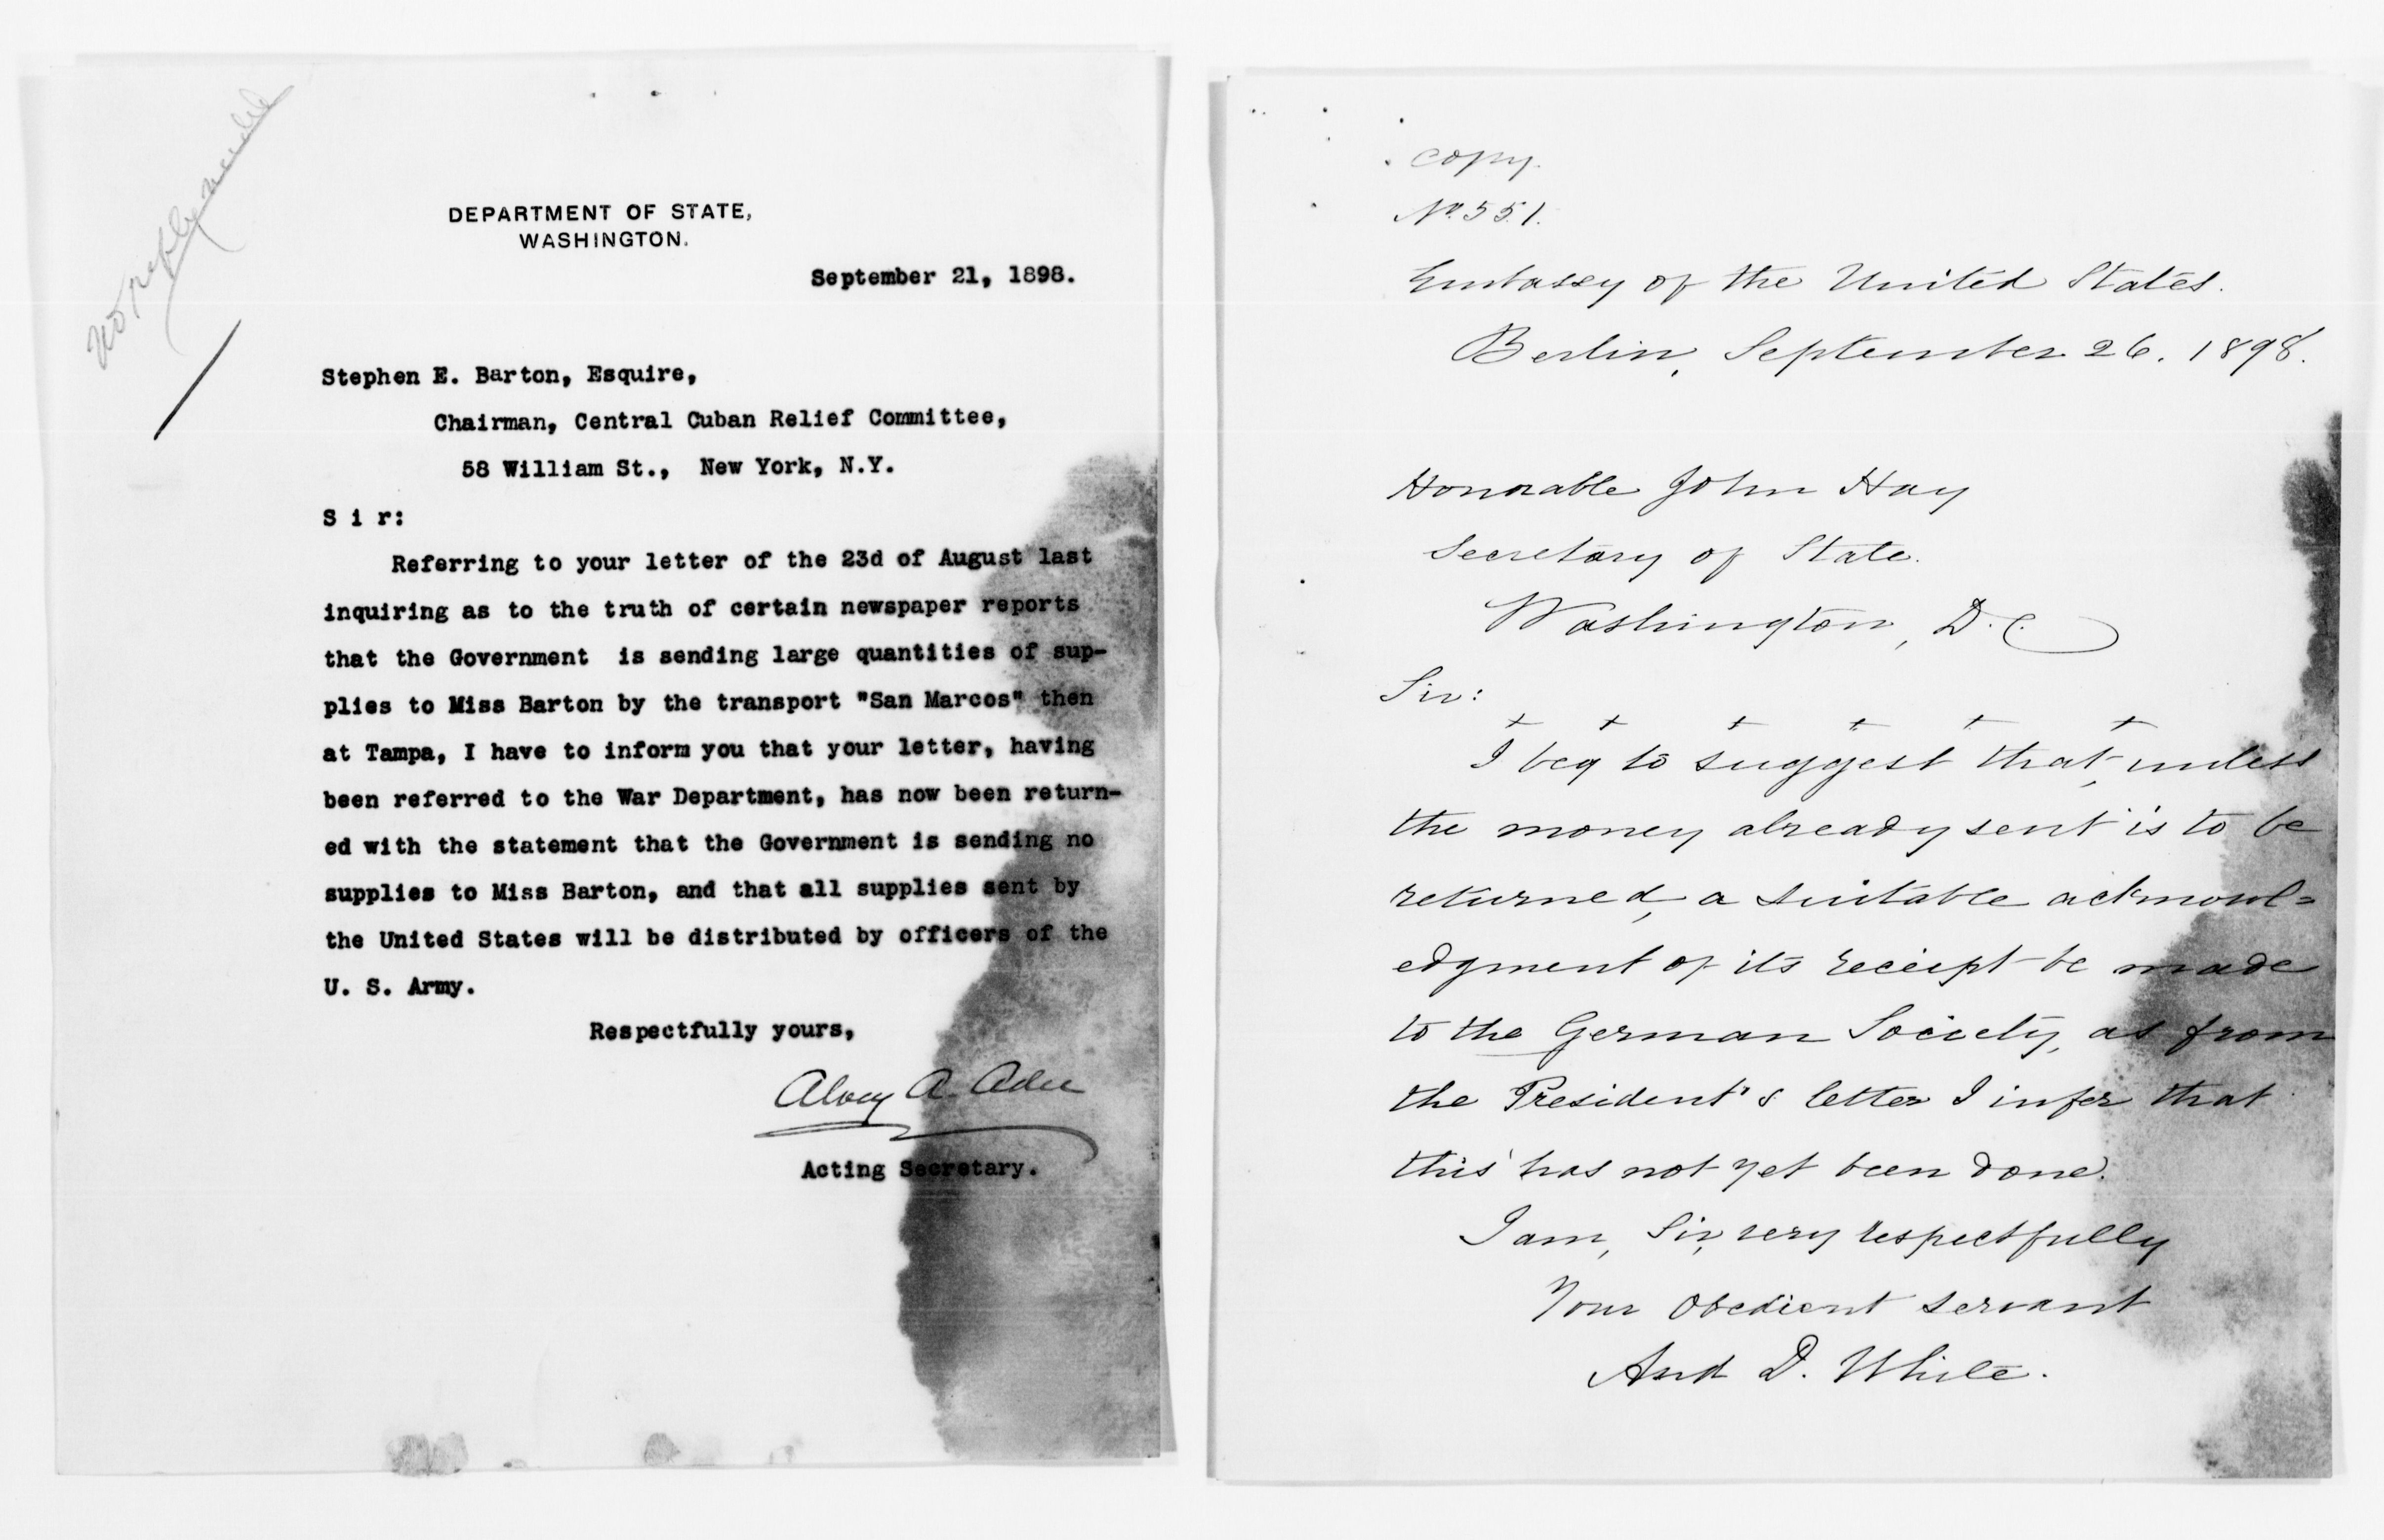 No reply needed
DEPARTMENT OF STATE,
WASHINGTON.
September 21, 1898.
Stephen E. Barton, Esquire,
Chairman, Central Cuban Relief Committee,
58 William St., New York, N.Y.
S i r:
Referring to your letter of the 23d of August last
inquiring as to the truth of certain newspaper reports
that the Government is sending large quantities of sup-
plies to Miss Barton by the transport "San Marcos" then
at Tampa, I have to inform you that your letter, having
been referred to the War Department, has now been return-
ed with the statement that the Government is sending no
supplies to Miss Barton, and that all supplies sent by
the United States will be distributed by officers of the
U. S. Army.
Respectfully yours,
Alvey A. Adee
Acting Secretary.
copy.
No. 551.
Embassy of the United States.
Berlin, September 26. 1898.
Honorable John Hay
Secretary of State.
Washington, D.C.
Sir:
+ + + + + +
I beg to suggest that, unless
the money already sent is to be
returned, a suitable acknowl=
edgment of its receipt be made
to the German Society, as from
the President's letter I infer that
this has not yet been done.
I am, Sir, very respectfully
Your obedient servant
And D. White.